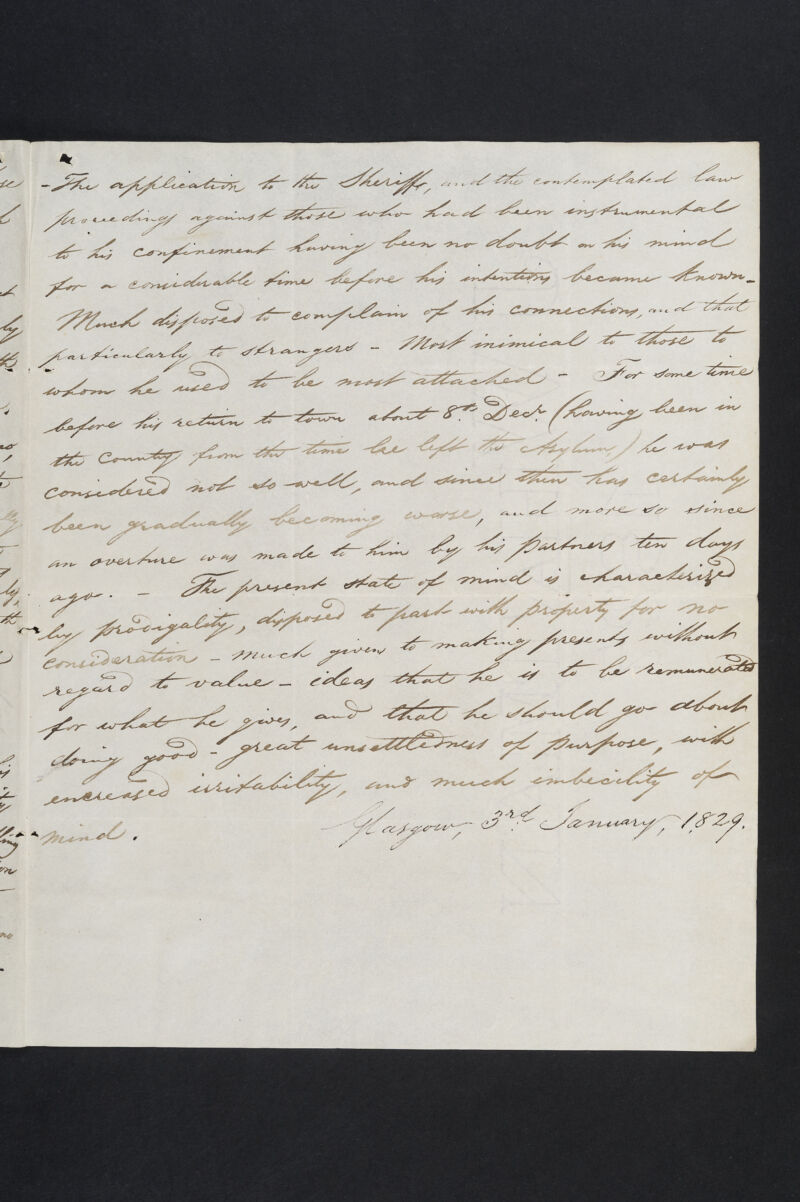 - The application to the Sheriff, and the contemplated law
proceedings against those who had been instrumental
to his confinement having been no doubt on his mind
for a considerable time before his intentions became known -
Much disposed to complain of his connections, and that
particularly to strangers - Most inimical to those to
whom he used to be most attached - For some time
before his return to town about 8th. Decr. (having been in
the Country from the time he left the Asylum,) he was
considered not so well, and since then has certainly
been gradually becoming worse, and more so since
an overture was made to him by his partners ten days
ago. - The present state of mind is characterized
by prodigality, disposed to part with property for no
consideration - much given to making presents without
regard to value - ideas that he is to be remunerated
for what he gives, and that he should go about
doing good - great unsettledness of purpose, with
encreased irritability, and much imbecility of
mind.
Glasgow, 3rd. January, 1829.